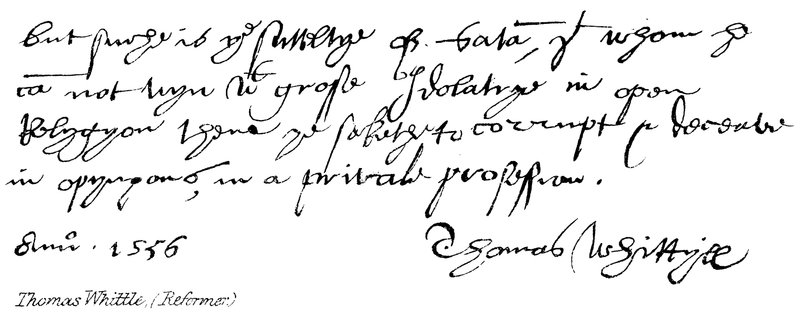 but suche is yᵉ sutteltye of Satā, yᵗ whom he
cā not wyn wᵗ grosse Idolatrye in open
Relygyon them he seketh to corrupt & deceave
in opynyons, in a private profession.
Anno. 1556
Thomas Whittyll
Thomas Whittle, (Reformer.)